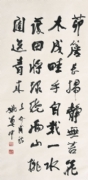 茅簷長掃靜無苔花
木成畦手自栽一水
護田將綠遶兩山排
闥送青來